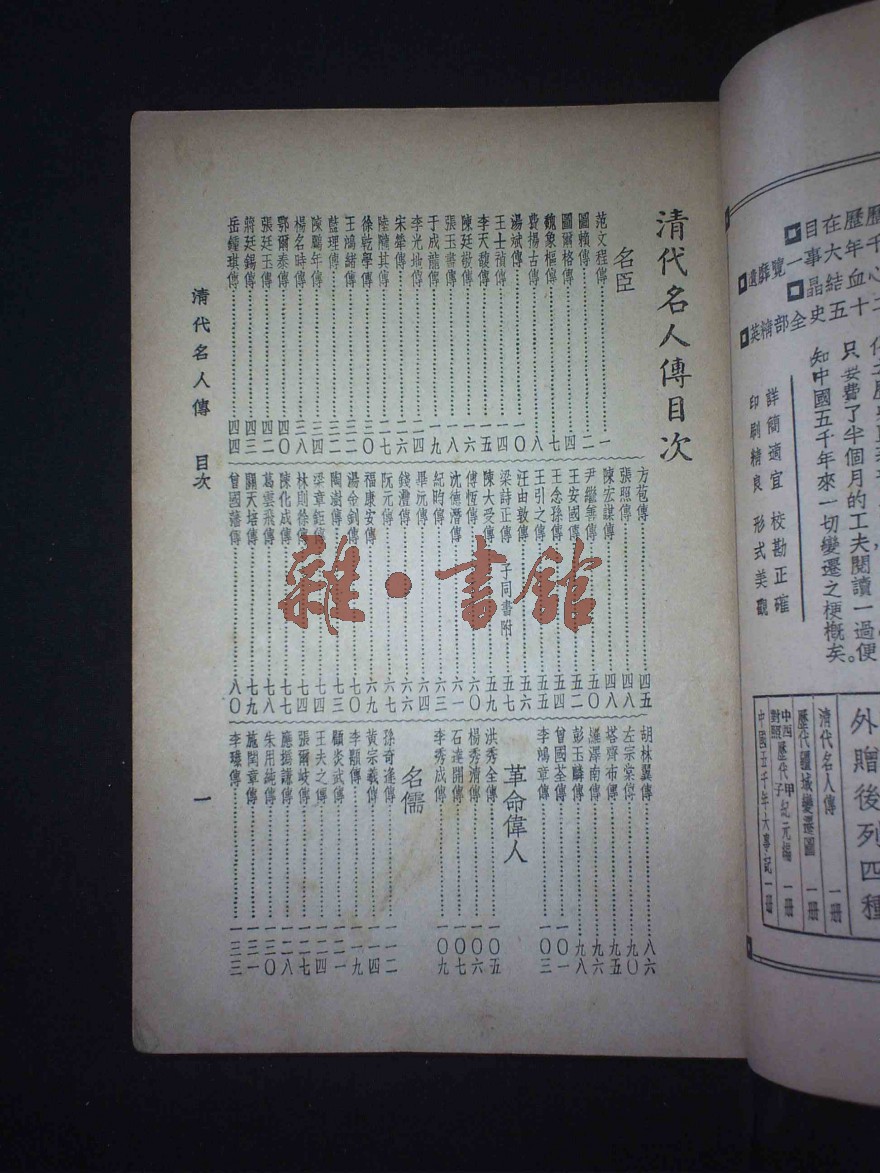 清代名人傳目次
名臣
范文程傳 一
圖賴傳 二
圖爾格傳 四
魏象樞傳 七
費揚古傳 八
湯斌傳 一〇
王士禎傳 一四
李天馥傳 一五
陳廷敬傳 一六
張玉書傳 一八
于成龍傳 一九
李光地傳 二四
宋犖傳 二六
陸隴其傳 二七
徐乾學傳 三〇
王鴻緒傳 三二
藍理傳 三二
陳鵬年傳 三四
楊名時傳 三八
鄂爾泰傳 四〇
張廷玉傳 四二
蔣廷錫傳 四三
岳鍾琪傳 四四
方苞傳 四五
張照傳 四八
陳宏謀傳 四八
尹繼善傳 五〇
王安國傳 五二
王念孫傳 五四
王引之傳 五五
汪由敦傳 五五
梁詩正傳 子同書附 五七
陳大受傳 五九
傅恆傳 六〇
沈德潛傳 六一
紀昀傳 六三
畢沅傳 六四
錢灃傳 六六
阮元傳 六七
福康安傳 六九
湯金釗傳 七〇
陶澍傳 七三
梁章鉅傳 七四
林則徐傳 七四
陳化成傳 七七
葛雲飛傳 七八
關天培傳 七九
曾國藩傳 八〇
胡林翼傳 八六
左宗棠傳 九〇
塔齊布傳 九五
羅澤南傳 九六
彭玉麟傳 九八
曾國荃傳 一〇一
李鴻章傳 一〇三
革命偉人
洪秀全傳 一〇五
楊秀清傳 一〇六
石達開傳 一〇七
李秀成傳 一〇九
名儒
孫奇逢傳 一一二
黃宗羲傳 一一四
李顒傳 一一九
顧炎武傳 一二一
王夫之傳 一二四
張爾岐傳 一二七
應撝謙傳 一二八
朱用純傳 一三〇
施閏章傳 一三一
李瓌傳 一三三
清代名人傳 目次
一
雜·書館
歷千
在歷年心
目事大血
一覽結五十
晶史
遺靡
英精部全
只要費了半個月的工夫閱讀一過便
知中國五千年來一切變遷之梗概矣。
詳簡適宜 校勘正確
印刷精良 形式美觀
外贈後列四種
清代名人傳 一册
歷代疆域變遷圖 一册
中西對照歷代甲子紀元編 一册
中國五千年大事記 一册